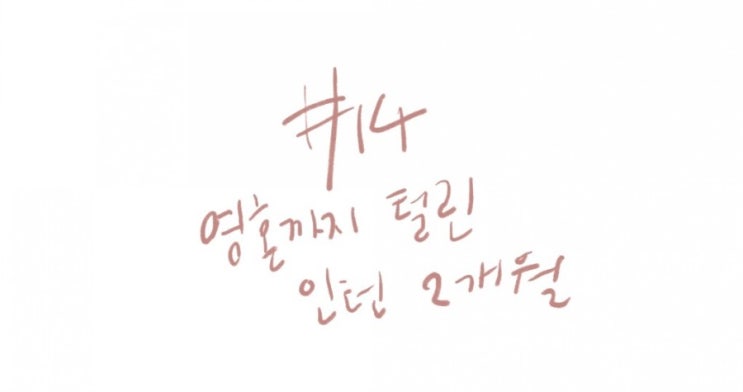 #14
영혼까지 털린
인턴 2개월